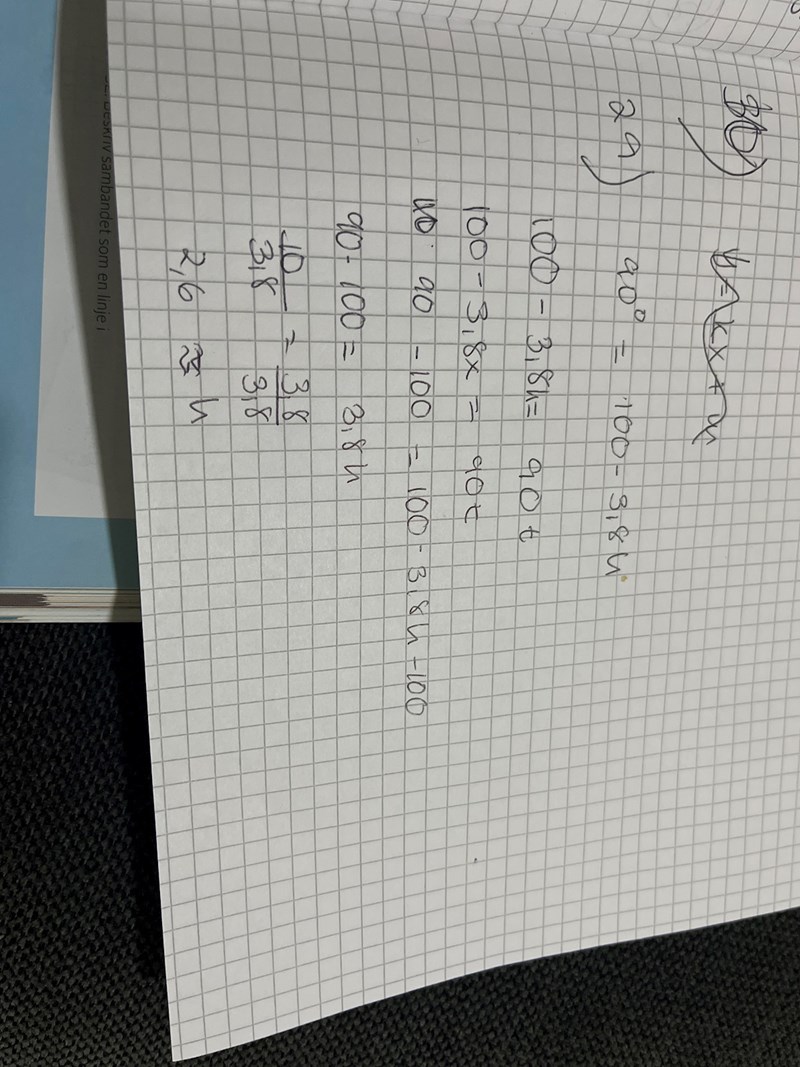 29)
90° = 100 - 3,8h
100 - 3,8h = 90 t
100 - 3,8x = 90 t
90 - 100 = 100 - 3,8h - 100
90 - 100 = 3,8h
10/3,8 = 3,8/3,8
2,6 ≈ h
BESKRIV sambandet som en linje i